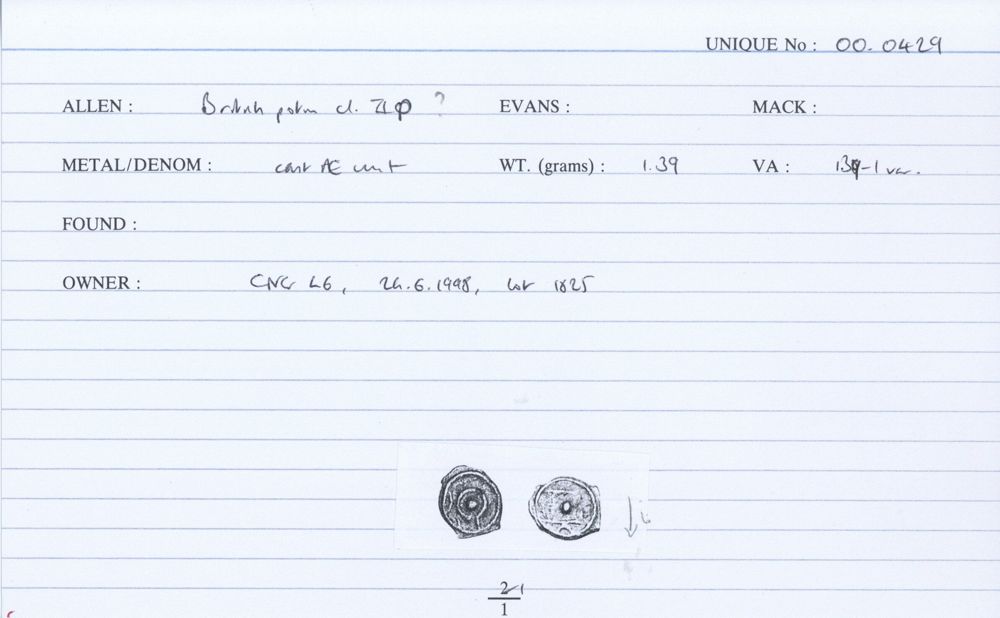 UNIQUE No : 00.0429
ALLEN : British potin cl. II ? EVANS : MACK :
METAL/DENOM : cast AE unit WT. (grams) : 1.39 VA : 139-1 var.
FOUND :
OWNER : CNG 46, 24.6.1998, lot 1825
↓
2
1